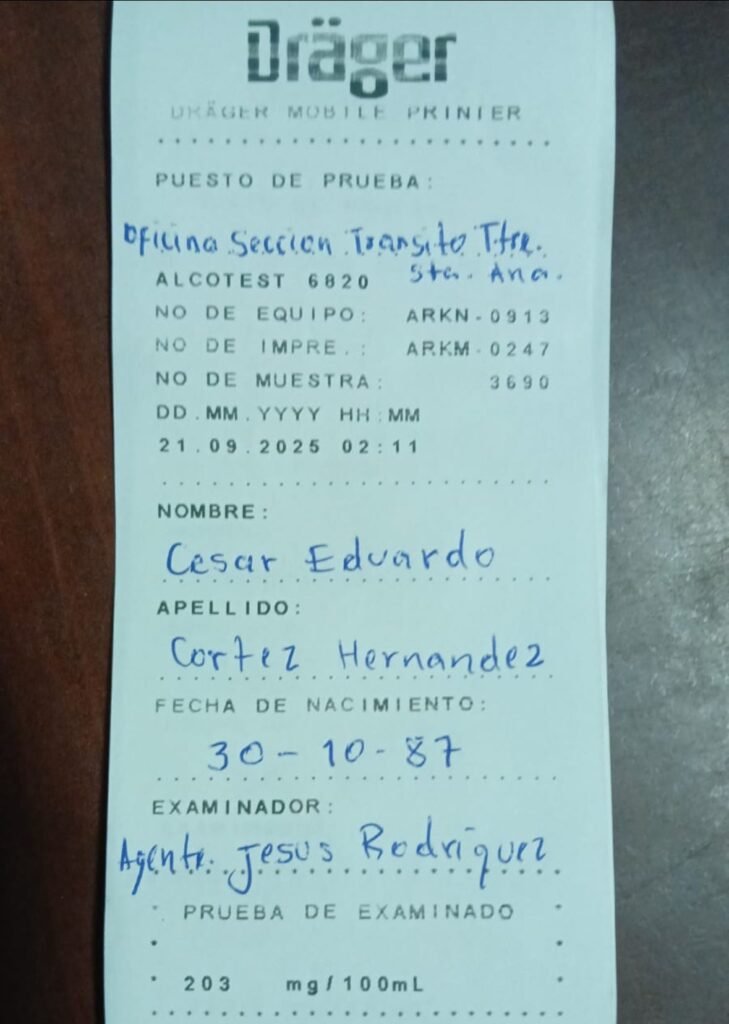 Dräger
DRÄGER MOBILE PRINTER
PUESTO DE PRUEBA:
Oficina Seccion Transito Ttre.
Sta. Ana.
ALCOTEST 6820
NO DE EQUIPO: ARKN-0913
NO DE IMPRE.: ARKM-0247
NO DE MUESTRA: 3690
DD.MM.YYYY HH:MM
21.09.2025 02:11
NOMBRE:
Cesar Eduardo
APELLIDO:
Cortez Hernandez
FECHA DE NACIMIENTO:
30-10-87
EXAMINADOR:
Agente. Jesus Rodriguez
PRUEBA DE EXAMINADO
203 mg/100mL